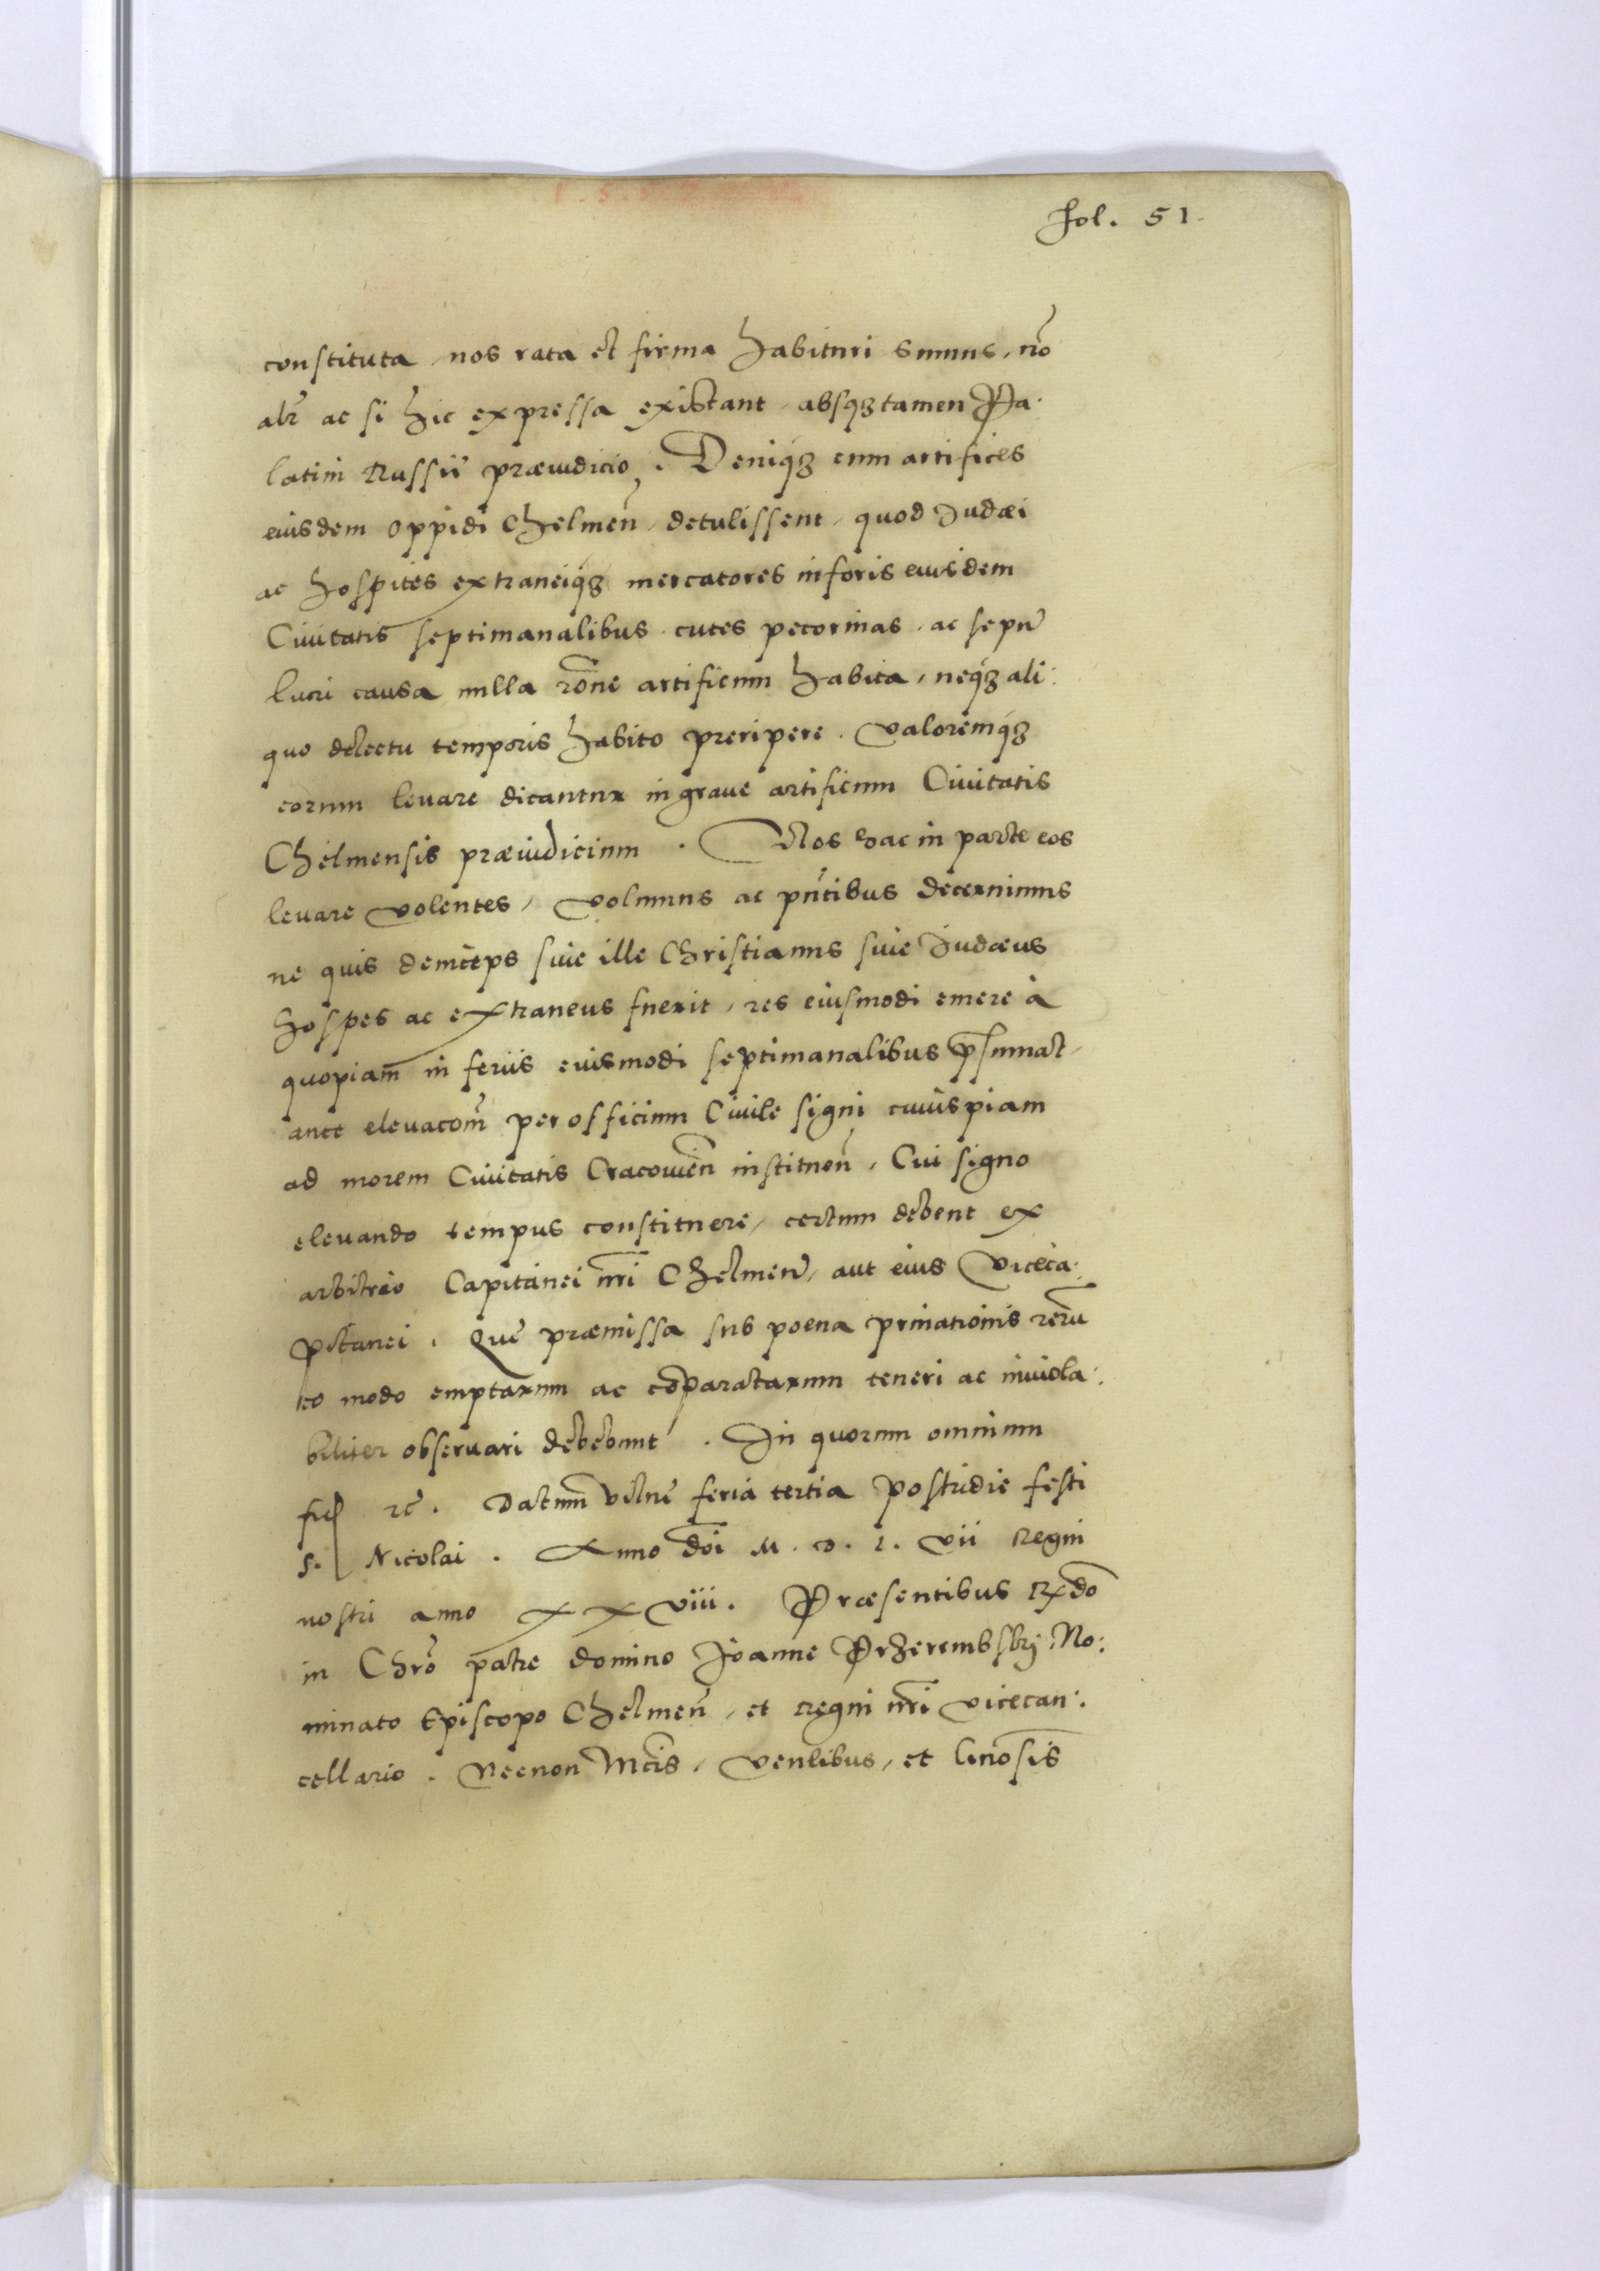 fol. 51.
constituta, nos rata et firma habituri sumus, nõ
alr̃ ac si hic expressa existant, absqȝ tamen Pa:
latini Russiẽ præiudicio. Deniqȝ cum artifices
eiusdem oppidi Chelmeñ, detulissent, quod Judæi
ac hospites extraneiqȝ mercatores in foris eiusdem
Ciuitatis septimanalibus, cutes pecorinas, ac sepũ
lucri causa nulla rõne artificum habita, neqȝ ali:
quo delectu temporis habito preripere. Valoremqȝ
eorum leuare dicantur in graue artificum Ciuitatis
Chelmensis præiudicium. Nos hac in parte eos
leuare volentes, volumus ac pñtibus decernimus
ne quis deinceps siue ille Christianus siue Judæus
hospes ac extraneus fuerit, res eiusmodi emere à
quopiam̃ in feriis eiusmodi septimanalibus p̃sumat,
ante eleuacoñ per officium Ciuile signi cuiuspiam
ad morem Ciuitatis Cracouieñ instituoñ, Cui signo
eleuando tempus constituere, certum debent ex
arbitrio Capitanei nr̃i Chelmeñ, aut eius Viceca:
pitanei. Quẽ præmissa sub poena priuationis rerũ
eo modo emptarum ac cõparatarum teneri ac inuiola:
biliter obseruari debebunt. In quorum omnium
fid rc̃. Datum̃ Vilnẽ feria tertia postridie festi
S. Nicolai. Anno doĩ M. D. L. vii Regni
nostri anno xxviii. Præsentibus Rx̃do
in Chrõ pãtre domino Joanne Przerembskj No:
minato Episcopo Chelmeñ, et Regni nr̃i vicecan:
cellario. Necnon Mcis̃, Venlibus, et Gnosis̃